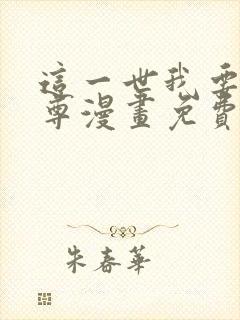 這一世我要
尊漫畫免費
朱春華